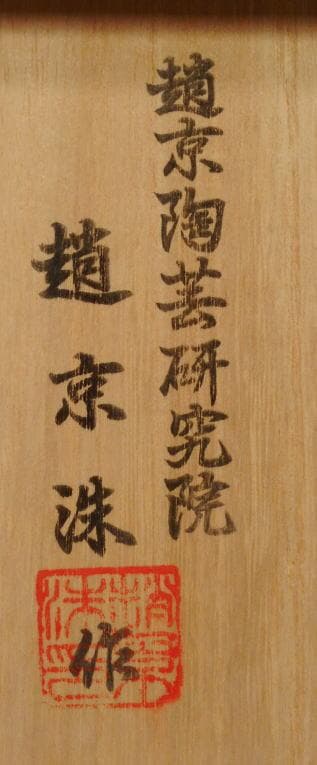 趙京陶芸研究院
趙京洙作